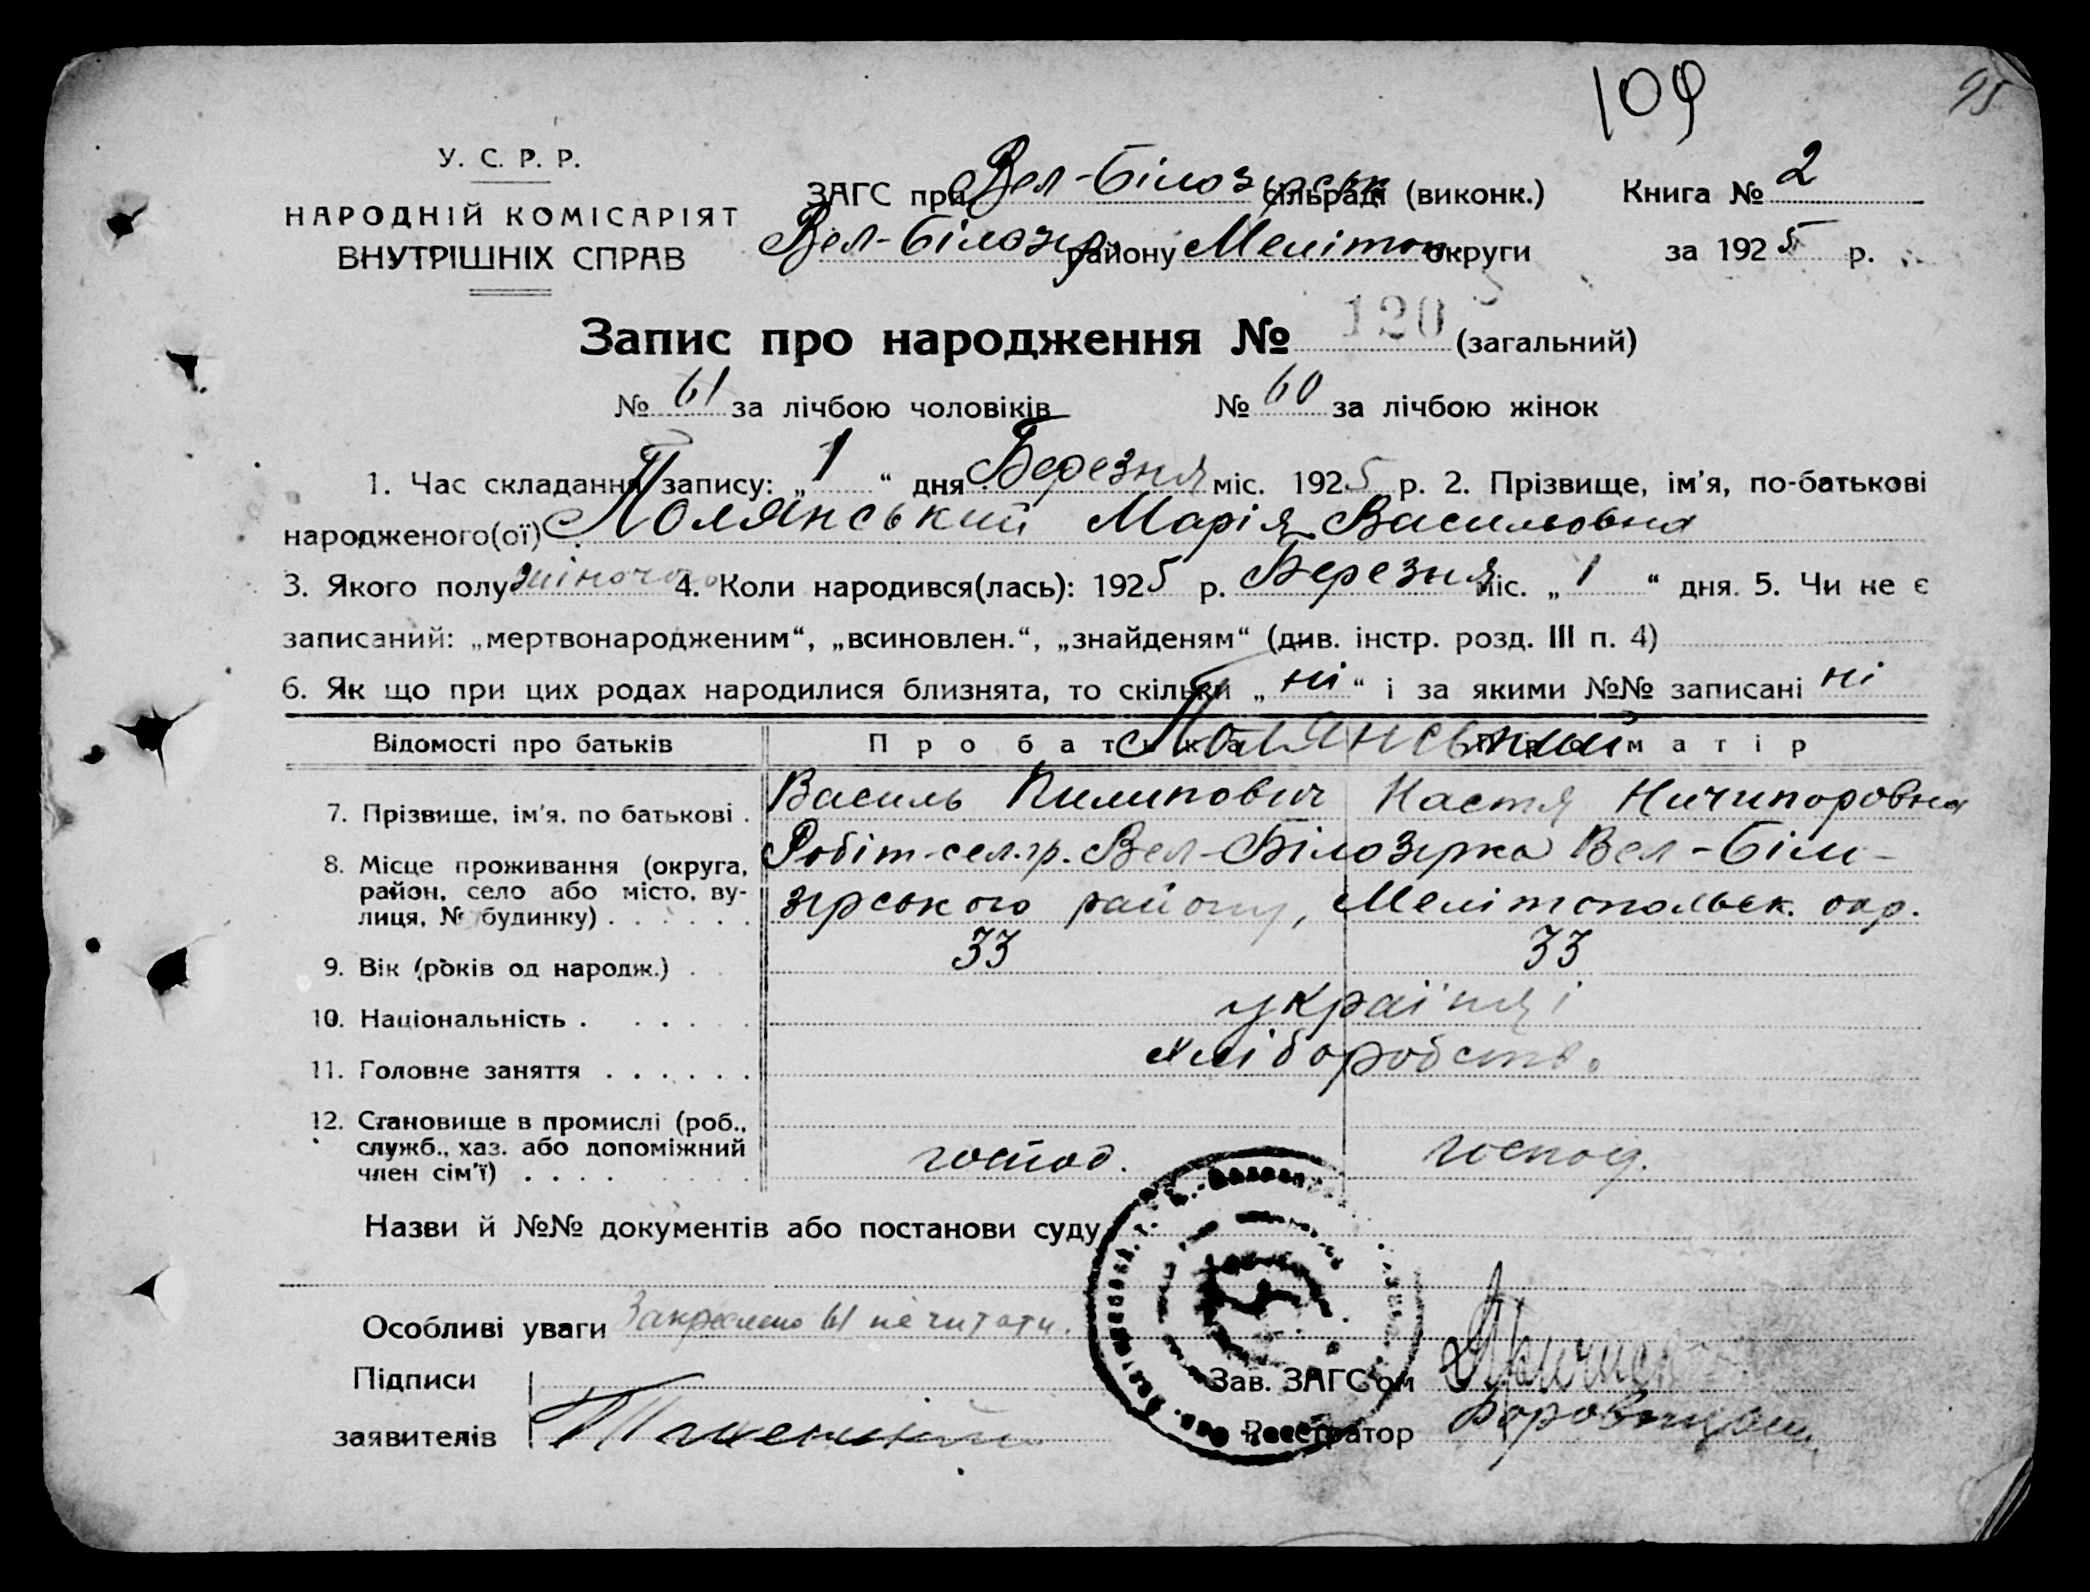 109
95
У. С. Р. Р.
НАРОДНІЙ КОМІСАРІЯТ
ВНУТРІШНІХ СПРАВ
ЗАГС при Вел-Білозірськ сільраді (виконк.) Книга № 2
Вел-Білозір. району Меліточ. округи за 1925 р.
Запис про народження № 120 (загальний)
№ 61 за лічбою чоловіків № 60 за лічбою жінок
1. Час складання запису: „ 1 “ дня Березня міс. 1925 р. 2. Прізвище, ім’я, по-батькові
народженого(ої) Полянський Марія Васильовна
3. Якого полу жіночого 4. Коли народився(лась): 1925 р. Березня міс. „ 1 “ дня. 5. Чи не є
записаний: „мертвонародженим“, „всиновлен.“, „знайденям“ (див. інстр. розд. III п. 4)
6. Як що при цих родах народилися близнята, то скільки „ ні “ і за якими №№ записані ні
Відомості про батьків Про батька Про матір
Полянський
7. Прізвище, ім’я, по батькові . Василь Пилипович Настя Ничипоровна
8. Місце проживання (округа, Робіт-сел.гр. Вел-Білозірка Вел-Біло-
район, село або місто, ву-
лиця, № будинку) . . . . . . зірського району, Мелітопольськ. окр.
9. Вік (років од народж.) . . 33 33
10. Національність . . . . . . українці
11. Головне заняття . . . . . . хліборобств.
12. Становище в промислі (роб.,
служб., хаз. або допоміжний
член сім’ї) . . . . господ. господ.
Назви й №№ документів або постанови суду
Особливі уваги Закреслено 61 не читати.
Підписи Зав. ЗАГС’ом
заявителів Реєстратор